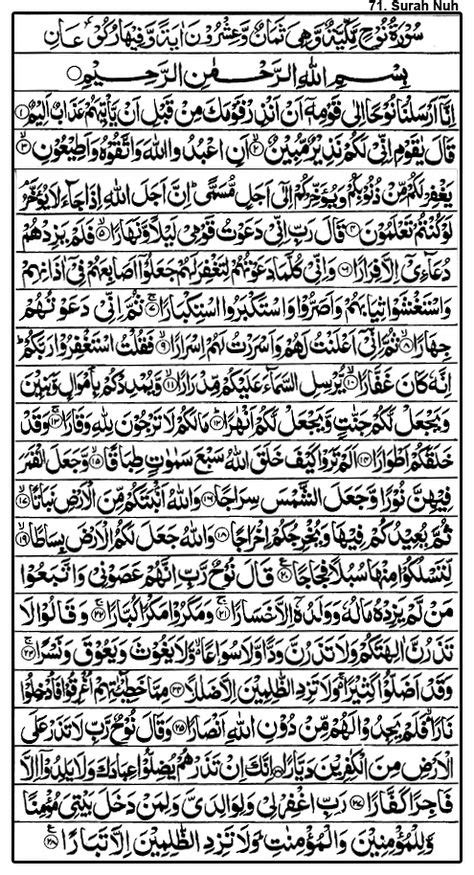 71. Surah Nuh
سُوْرَةُ نُوْحٍ مَّكِّيَّةٌ وَّهِيَ ثَمَانٌ وَّعِشْرُوْنَ اٰيَةً وَّفِيْهَا رُكُوْعَانِ
بِسْمِ اللهِ الرَّحْمٰنِ الرَّحِيْمِ
اِنَّآ اَرْسَلْنَا نُوْحًا اِلٰى قَوْمِهٖٓ اَنْ اَنْذِرْ قَوْمَكَ مِنْ قَبْلِ اَنْ يَّاْتِيَهُمْ عَذَابٌ اَلِيْمٌ ۝۱
قَالَ يٰقَوْمِ اِنِّيْ لَكُمْ نَذِيْرٌ مُّبِيْنٌ ۝۲ اَنِ اعْبُدُوا اللهَ وَاتَّقُوْهُ وَاَطِيْعُوْنِ ۝۳
يَغْفِرْ لَكُمْ مِّنْ ذُنُوْبِكُمْ وَيُؤَخِّرْكُمْ اِلٰٓى اَجَلٍ مُّسَمًّى ؕ اِنَّ اَجَلَ اللهِ اِذَا جَآءَ لَا يُؤَخَّرُ
لَوْ كُنْتُمْ تَعْلَمُوْنَ ۝۴ قَالَ رَبِّ اِنِّيْ دَعَوْتُ قَوْمِيْ لَيْلًا وَّنَهَارًا ۝۵ فَلَمْ يَزِدْهُمْ
دُعَآءِيْٓ اِلَّا فِرَارًا ۝۶ وَاِنِّيْ كُلَّمَا دَعَوْتُهُمْ لِتَغْفِرَ لَهُمْ جَعَلُوْٓا اَصَابِعَهُمْ فِيْٓ اٰذَانِهِمْ
وَاسْتَغْشَوْا ثِيَابَهُمْ وَاَصَرُّوْا وَاسْتَكْبَرُوا اسْتِكْبَارًا ۝۷ ثُمَّ اِنِّيْ دَعَوْتُهُمْ
جِهَارًا ۝۸ ثُمَّ اِنِّيْٓ اَعْلَنْتُ لَهُمْ وَاَسْرَرْتُ لَهُمْ اِسْرَارًا ۝۹ فَقُلْتُ اسْتَغْفِرُوْا رَبَّكُمْ ؕ
اِنَّهٗ كَانَ غَفَّارًا ۝۱۰ يُّرْسِلِ السَّمَآءَ عَلَيْكُمْ مِّدْرَارًا ۝۱۱ وَّيُمْدِدْكُمْ بِاَمْوَالٍ وَّبَنِيْنَ
وَيَجْعَلْ لَّكُمْ جَنّٰتٍ وَّيَجْعَلْ لَّكُمْ اَنْهٰرًا ۝۱۲ مَا لَكُمْ لَا تَرْجُوْنَ لِلّٰهِ وَقَارًا ۝۱۳ وَقَدْ
خَلَقَكُمْ اَطْوَارًا ۝۱۴ اَلَمْ تَرَوْا كَيْفَ خَلَقَ اللهُ سَبْعَ سَمٰوٰتٍ طِبَاقًا ۝۱۵ وَّجَعَلَ الْقَمَرَ
فِيْهِنَّ نُوْرًا وَّجَعَلَ الشَّمْسَ سِرَاجًا ۝۱۶ وَاللهُ اَنْۢبَتَكُمْ مِّنَ الْاَرْضِ نَبَاتًا ۝۱۷
ثُمَّ يُعِيْدُكُمْ فِيْهَا وَيُخْرِجُكُمْ اِخْرَاجًا ۝۱۸ وَاللهُ جَعَلَ لَكُمُ الْاَرْضَ بِسَاطًا ۝۱۹
لِّتَسْلُكُوْا مِنْهَا سُبُلًا فِجَاجًا ۝۲۰ قَالَ نُوْحٌ رَّبِّ اِنَّهُمْ عَصَوْنِيْ وَاتَّبَعُوْا
مَنْ لَّمْ يَزِدْهُ مَالُهٗ وَوَلَدُهٗٓ اِلَّا خَسَارًا ۝۲۱ وَمَكَرُوْا مَكْرًا كُبَّارًا ۝۲۲ وَقَالُوْا لَا
تَذَرُنَّ اٰلِهَتَكُمْ وَلَا تَذَرُنَّ وَدًّا وَّلَا سُوَاعًا ۙ وَّلَا يَغُوْثَ وَيَعُوْقَ وَنَسْرًا ۝۲۳
وَقَدْ اَضَلُّوْا كَثِيْرًا ۚ وَلَا تَزِدِ الظّٰلِمِيْنَ اِلَّا ضَلٰلًا ۝۲۴ مِمَّا خَطِيْٓـٰٔتِهِمْ اُغْرِقُوْا فَاُدْخِلُوْا
نَارًا ۙ فَلَمْ يَجِدُوْا لَهُمْ مِّنْ دُوْنِ اللهِ اَنْصَارًا ۝۲۵ وَقَالَ نُوْحٌ رَّبِّ لَا تَذَرْ عَلَى
الْاَرْضِ مِنَ الْكٰفِرِيْنَ دَيَّارًا ۝۲۶ اِنَّكَ اِنْ تَذَرْهُمْ يُضِلُّوْا عِبَادَكَ وَلَا يَلِدُوْٓا اِلَّا
فَاجِرًا كَفَّارًا ۝۲۷ رَبِّ اغْفِرْ لِيْ وَلِوَالِدَيَّ وَلِمَنْ دَخَلَ بَيْتِيَ مُؤْمِنًا
وَّلِلْمُؤْمِنِيْنَ وَالْمُؤْمِنٰتِ ؕ وَلَا تَزِدِ الظّٰلِمِيْنَ اِلَّا تَبَارًا ۝۲۸